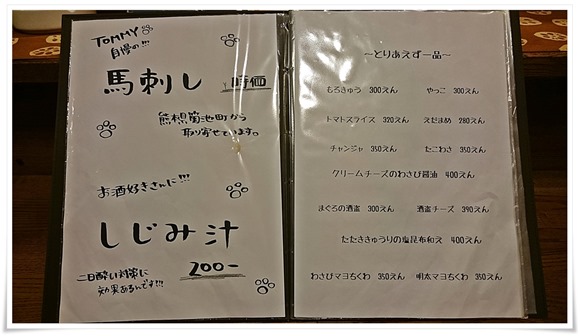 TOMMY
自慢の!!!
馬刺し 時価
熊本県菊池町から
取り寄せています。
お酒好きさんに!!!
しじみ汁
200-
二日酔い対策に
効果あるんです!!!
〜とりあえず一品〜
もろきゅう 300えん やっこ 300えん
トマトスライス 320えん えだまめ 280えん
チャンジャ 350えん たこわさ 350えん
クリームチーズのわさび醤油 400えん
まぐろの酒盗 300えん 酒盗チーズ 390えん
たたききゅうりの塩昆布和え 400えん
わさびマヨちくわ 350えん 明太マヨちくわ 350えん